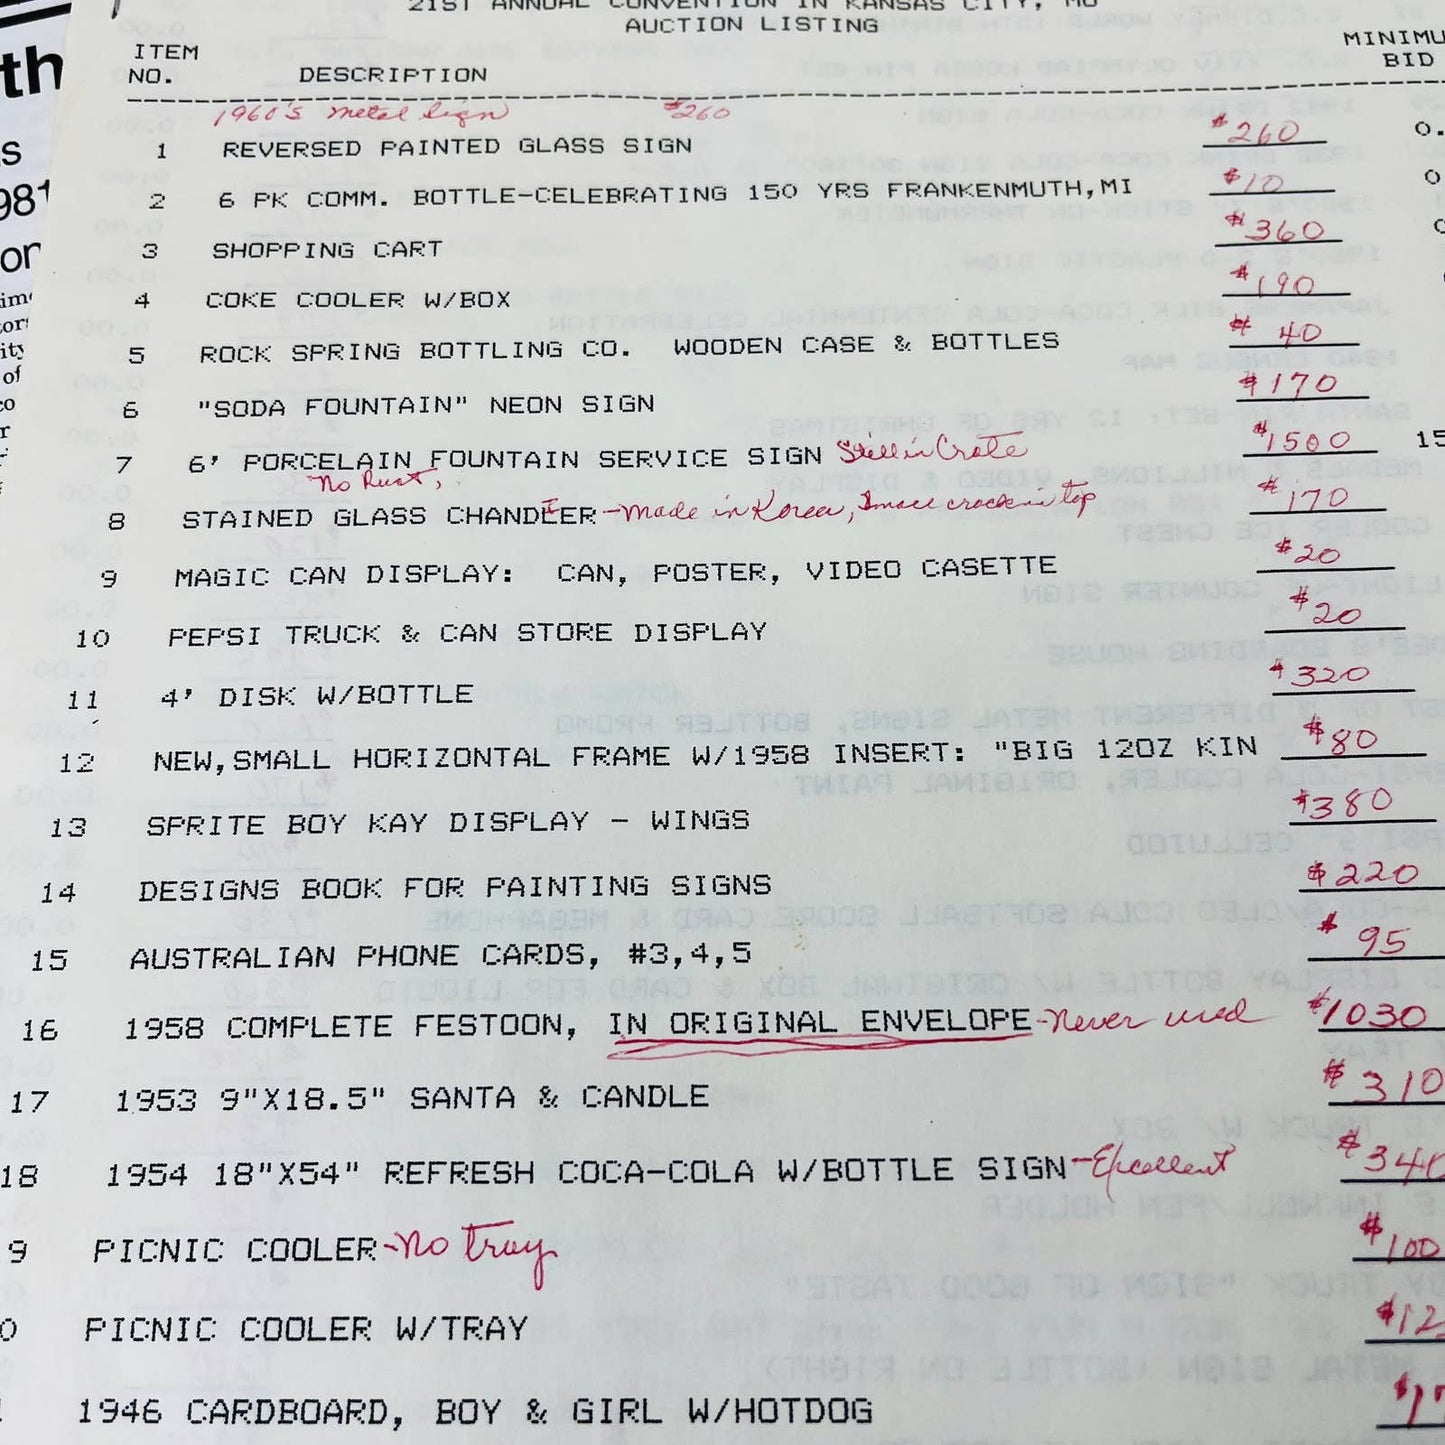 21ST ANNUAL CONVENTION IN KANSAS CITY, MO
AUCTION LISTING
ITEM NO. DESCRIPTION MINIMU BID
1960's Metal Sign $260
1 REVERSED PAINTED GLASS SIGN $260 0.
2 6 PK COMM. BOTTLE-CELEBRATING 150 YRS FRANKENMUTH,MI $10 0
3 SHOPPING CART $360
4 COKE COOLER W/BOX $190
5 ROCK SPRING BOTTLING CO. WOODEN CASE & BOTTLES $40
6 "SODA FOUNTAIN" NEON SIGN $170
7 6' PORCELAIN FOUNTAIN SERVICE SIGN Still in Crate $1500 15
No Rust,
8 STAINED GLASS CHANDEER -Made in Korea, Small crack in top $170
9 MAGIC CAN DISPLAY: CAN, POSTER, VIDEO CASETTE $20
10 PEPSI TRUCK & CAN STORE DISPLAY $20
11 4' DISK W/BOTTLE $320
12 NEW,SMALL HORIZONTAL FRAME W/1958 INSERT: "BIG 12OZ KIN $80
13 SPRITE BOY KAY DISPLAY - WINGS $380
14 DESIGNS BOOK FOR PAINTING SIGNS $220
15 AUSTRALIAN PHONE CARDS, #3,4,5 $95
16 1958 COMPLETE FESTOON, IN ORIGINAL ENVELOPE -Never used $1030
17 1953 9"X18.5" SANTA & CANDLE $310
18 1954 18"X54" REFRESH COCA-COLA W/BOTTLE SIGN -Excellent $340
9 PICNIC COOLER -No tray $100
0 PICNIC COOLER W/TRAY $12
1946 CARDBOARD, BOY & GIRL W/HOTDOG $17
th
s
981
on